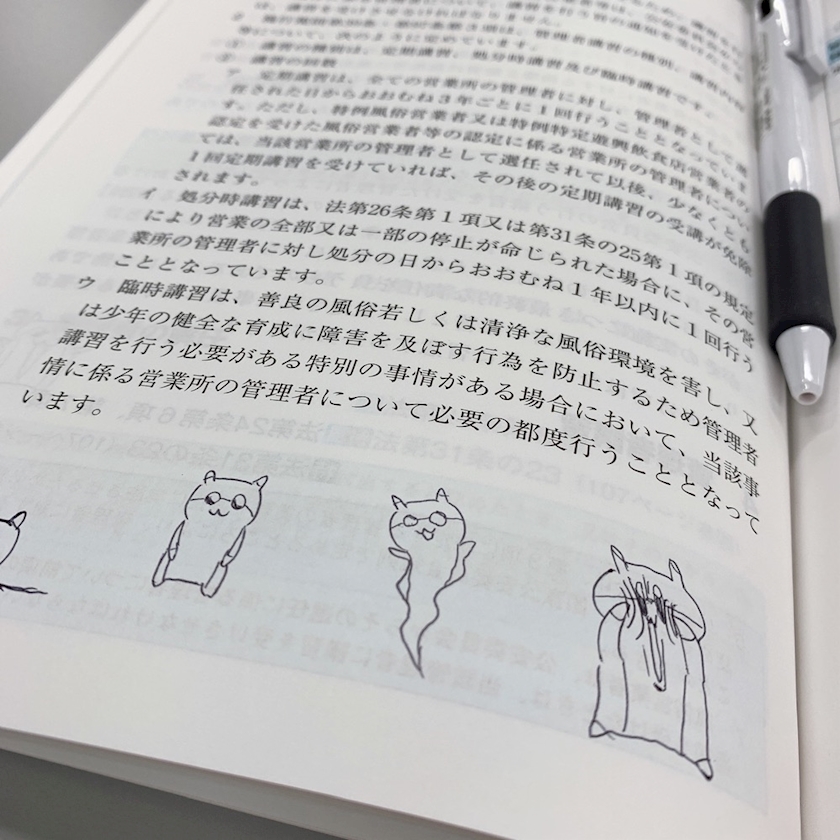 は、管理者講習の種別、講習内容
等について、次のように定めています。
① 講習の種別は、定期講習、処分時講習及び臨時講習です。
② 講習の回数
ア 定期講習は、全ての営業所の管理者に対し、管理者として選
任された日からおおむね3年ごとに1回行うこととなっていま
す。ただし、特例風俗営業者又は特例特定遊興飲食店営業者の
認定を受けた風俗営業者等の認定に係る営業所の管理者につい
ては、当該営業所の管理者として選任されて以後、少なくとも
1回定期講習を受けていれば、その後の定期講習の受講が免除
されます。
イ 処分時講習は、法第26条第1項又は第31条の25第1項の規定
により営業の全部又は一部の停止が命じられた場合に、その営
業所の管理者に対し処分の日からおおむね1年以内に1回行う
こととなっています。
ウ 臨時講習は、善良の風俗若しくは清浄な風俗環境を害し、又
は少年の健全な育成に障害を及ぼす行為を防止するため管理者
講習を行う必要がある特別の事情がある場合において、当該事
情に係る営業所の管理者について必要の都度行うこととなって
います。